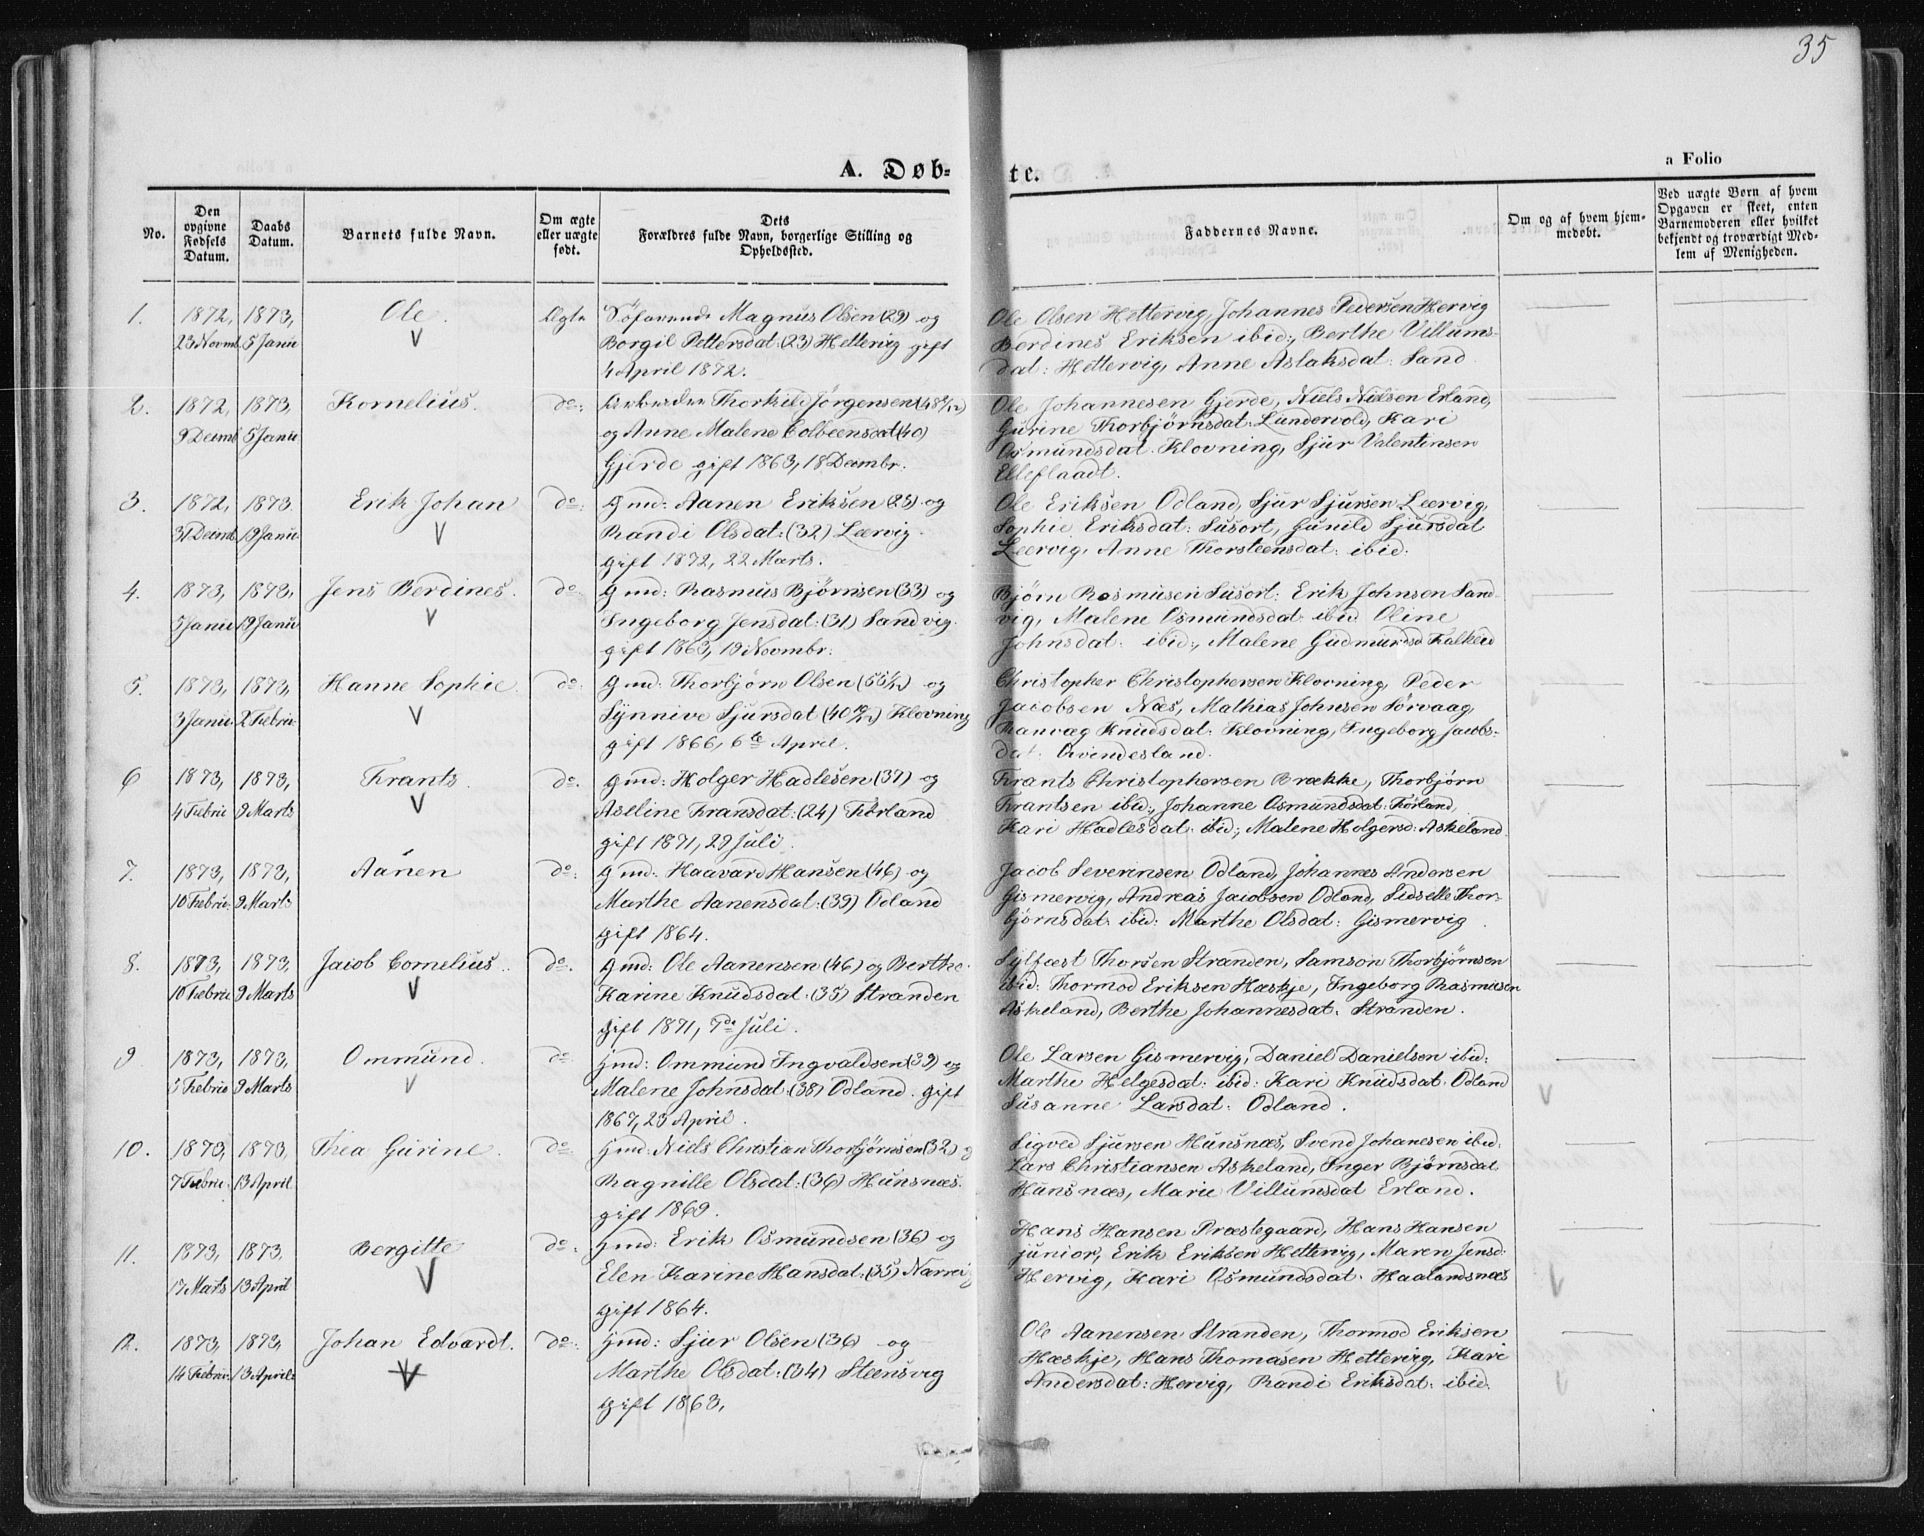 35
a Folio
A. Døb-
te.
No.
Den opgivne Fødsels Datum.
Daabs Datum.
Barnets fulde Navn.
Om ægte eller uægte født.
Dets Forældres fulde Navn, borgerlige Stilling og Opholdssted.
Faddernes Navne.
Om og af hvem hjemmedøbt.
Ved uægte Børn af hvem Opgaven er skeet, enten Barnemoderen eller hvilket bekjendt og troværdigt Medlem af Menigheden.
1. 1872, 1873, Ole. Ægte Søfarende Magnus Olsen (29) og
23 Novmb. 5 Janu Borgil Pettersdat (23) Hettervig gift
4 April 1872.
Ole Olsen Hettervig, Johannes Pedersen Hervig
Berdines Eriksen ibid:, Berthe Villums-
dat: Hettervig, Anne Aslaksdat: Sand
2. 1872, 1873, Kornelius. do: Thorkild Jørgensen
9 Decmb 5 Janu og Anne Malene (40)
Gjerde gift 1863, 18 Decmbr.
Ole Johannesen Gjerde, Niels Nielsen Erland,
Gurine Thorbjørnsdat: Lundervold, Kari
Osmundsdat. Klovning, Sjur Valentinsen
Elleflaadt.
3. 1872, 1873. Erik Johan do: Gmd: Aanen Eriksen (25) og
31 Decmb 19 Janu Randi Olsdat: (32) Lærvig.
gift 1872, 22 Marts.
Ole Eriksen Odland, Sjur Sjursen Leervig,
Sophie Eriksdat: Susort, Gunild Sjursdat
Leervig, Anne Thorsteensdat: ibid:
4. 1873, 1873, Jens Berdines. do: Gmd: Rasmus Bjørnsen (33) og
5 Janu 19 Janu Ingeborg Jensdat: (31) Sandvig.
gift 1863, 19 Novmbr:
Bjørn Rasmusen Susort: Erik Johnsen Sand-
vig, Malene Osmundsdat: ibid Oline
Johnsdat: ibid:, Malene Gudmundsd Falkeid
5. 1873, 1873, Hanne Sophie. do: Gmd: Thorbjørn Olsen og
3 Janu. 2 Febru Synnive Sjursdat Klovning
gift 1866, 6te April.
Christopher Christophersen Klovning, Peder
Jacobsen Næs, Mathias Johnsen Sørvaag,
Ranvæg Knudsdat: Klovning, Ingeborg Jacobs-
dat. Qvindesland.
6 1873, 1873, Frants. do. Gmd: Holger Hadlesen (37) og
4 Febru 9 Marts Aselline Fransdat: (24) Førland
gift 1871, 29 Juli.
Frants Christophersen Brække, Thorbjørn
Frantsen ibid:, Johanne Osmundsdat: Førland,
Kari Hadlesdat: ibid:, Malene Holgersd: Askeland.
7. 1873, 1873, Aanen do: Gmd: Haavard Hansen (46) og
10 Febru. 9 Marts Marthe Aanensdat: (39) Odland
gift 1864.
Jacob Severinsen Odland, Johannes Andersen
Gismervig, Andreas Jacobsen Odland, Sidselle Thor-
bjørnsdat: ibid: Marthe Olsdat: Gismervig.
8. 1873, 1873, Jacob Cornelius. do. Gmd: Ole Aanensen (46) og Berthe
10 Febru 9 Marts Karine Knudsdat: (35) Stranden
gift 1871, 7de Juli.
Sylfæst Thorsen Stranden, Samson Thorbjørnsen
ibid: Thormod Eriksen Hæskje, Ingeborg Rasmusen
Askeland, Berthe Johannesdat: Stranden.
9 1873, 1873, Ommund. do: Gmd: Ommund Ingvaldsen (39) og
5 Febru 9 Marts Malene Johnsdat: (38) Odland. gift
1867, 23 April.
Ole Larsen Gismervig, Daniel Danielsen ibid:
Marthe Helgesdat: ibid: Kari Knudsdat. Odland
Susanne Larsdat: Odland.
10. 1873, 1873, Thea Gurine. do: Gmd: Niels Christian Thorbjørnsen (32) og
7 Febru. 13 April Ragnille Olsdat: (36) Hunsnæs.
gift 1869.
Sigved Sjursen Hunsnæs, Svend Johanesen ibid:
Lars Christiansen Askeland, Inger Bjørnsdat
Hunsnæs, Marie Villumsdat Erland.
11. 1873, 1873, Bergitte do: Gmd: Erik Osmundsen (36) og
17 Marts 13 April Elen Karine Hansdat: (35)
gift 1864.
Hans Hansen Præstegaard, Hans Hansen
junior, Erik Eriksen Hettervig, Maren Jensd:
Hervig, Kari Osmundsdat: Haalandsnæs
12. 1873, 1873, Johan Edvardt. do: Gmd: Sjur Olsen (36) og
14 Febru. 13 April Marthe Olsdat: (34) Steensvig
gift 1863,
Ole Aanensen Stranden, Thormod Eriksen
Hæskje, Hans Thomasen Hettervig, Kari
Andersdat: Hervig, Randi Eriksdat: ibid.